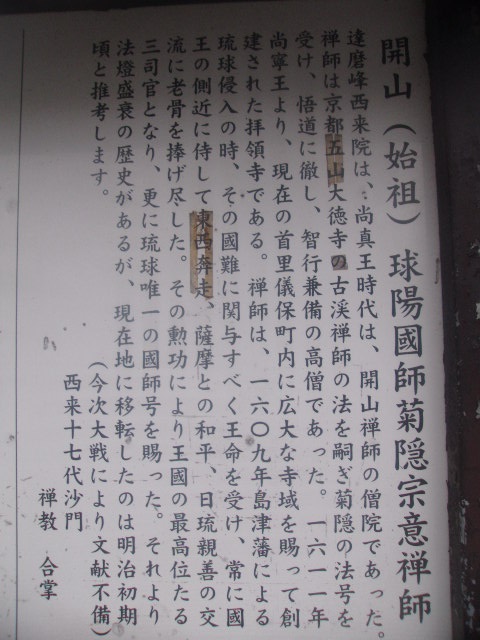 開山（始祖）球陽國師菊隠宗意禅師
達磨峰西来院は、尚真王時代は、開山禅師の僧院であった。
禅師は京都五山大徳寺の古渓禅師の法を嗣ぎ菊隠の法号を
受け、悟道に徹し、智行兼備の高僧であった。一六一一年
尚寧王より、現在の首里儀保町内に広大な寺域を賜って創
建された拝領寺である。禅師は、一六〇九年島津藩による
琉球侵入の時、その國難に関与すべく王命を受け、常に國
王の側近に侍して東西奔走、薩摩との和平、日琉親善の交
流に老骨を捧げ尽した。その勲功により王國の最高位たる
三司官となり、更に琉球唯一の國師号を賜った。それより
法燈盛衰の歴史があるが、現在地に移転したのは明治初期
頃と推考します。
（今次大戦により文献不備）
西来十七代沙門
禅教 合掌